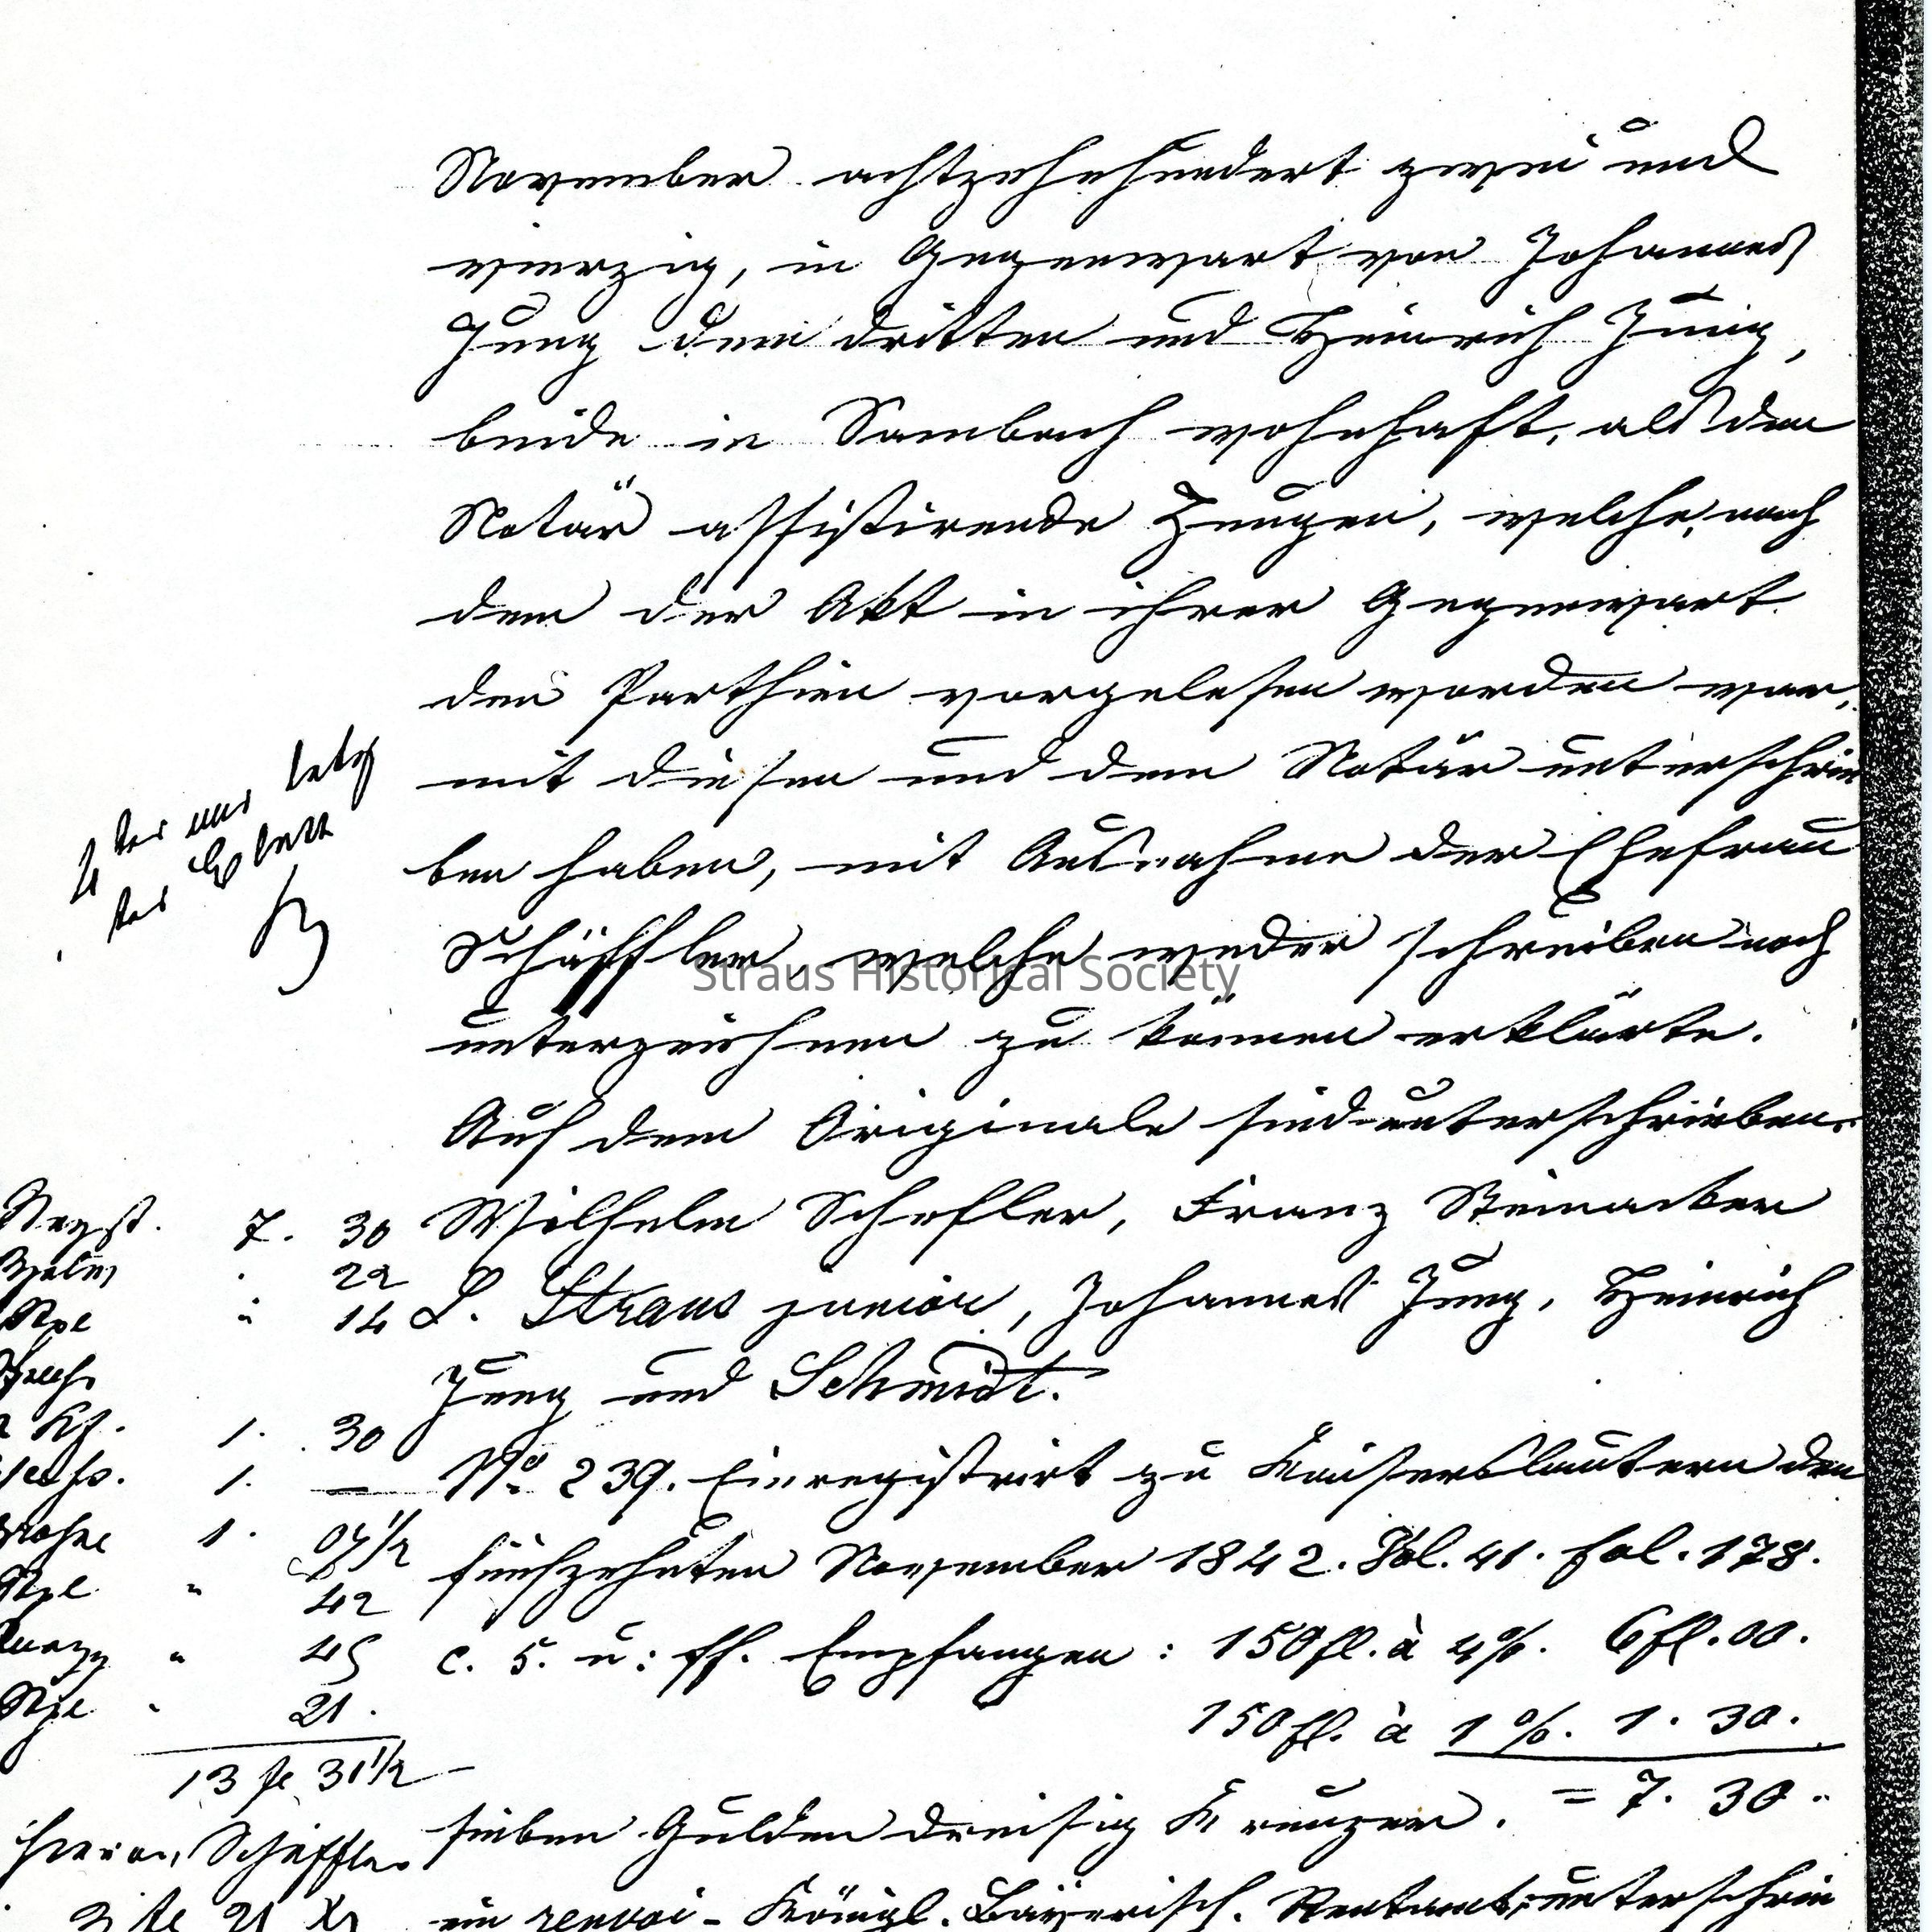 November achtzehnhundert zwei und
vierzig, in Gegenwart von Johannes
Jung dem dritten und Heinrich Jung,
beide in Sambach wohnhaft, als den
Notär assistirende Zeugen, welche, nach
dem der Akt in ihrer Gegenwart
den Parthien vorgelesen worden war,
mit diesen und dem Notär unterschrie
ben haben, mit Ausnahme der Ehefrau
Schäffler, welche weder schreiben noch
unterzeichnen zu können erklärte.
Straus Historical Society
Auf dem Originale sind unterschrieben:
Wilhelm Schefler, Franz Steinacker
L. Straus junior, Johannes Jung, Heinrich
Jung und Schmidt.
No. 239. Einregistrirt zu Kaiserslautern den
fünfzehnten November 1842. Vol. 41. fol. 178.
c. 5. u: ff. Empfangen: 150 fl. à 4%. 6 fl. 00.
150 fl. à 1%. 1. 30.
= 7. 30.
sieben Gulden dreisig Kreuzer.
ein renvoi - Königl. Bayerisch. Rentamt, unterschrie
Regst. 7. 30
" 22
" 14
1. 30
1. —
1. 07 1/2
" 42
" 45
" 21.
13 fl 31 1/2
Schäffler
3 fl 21 Xr